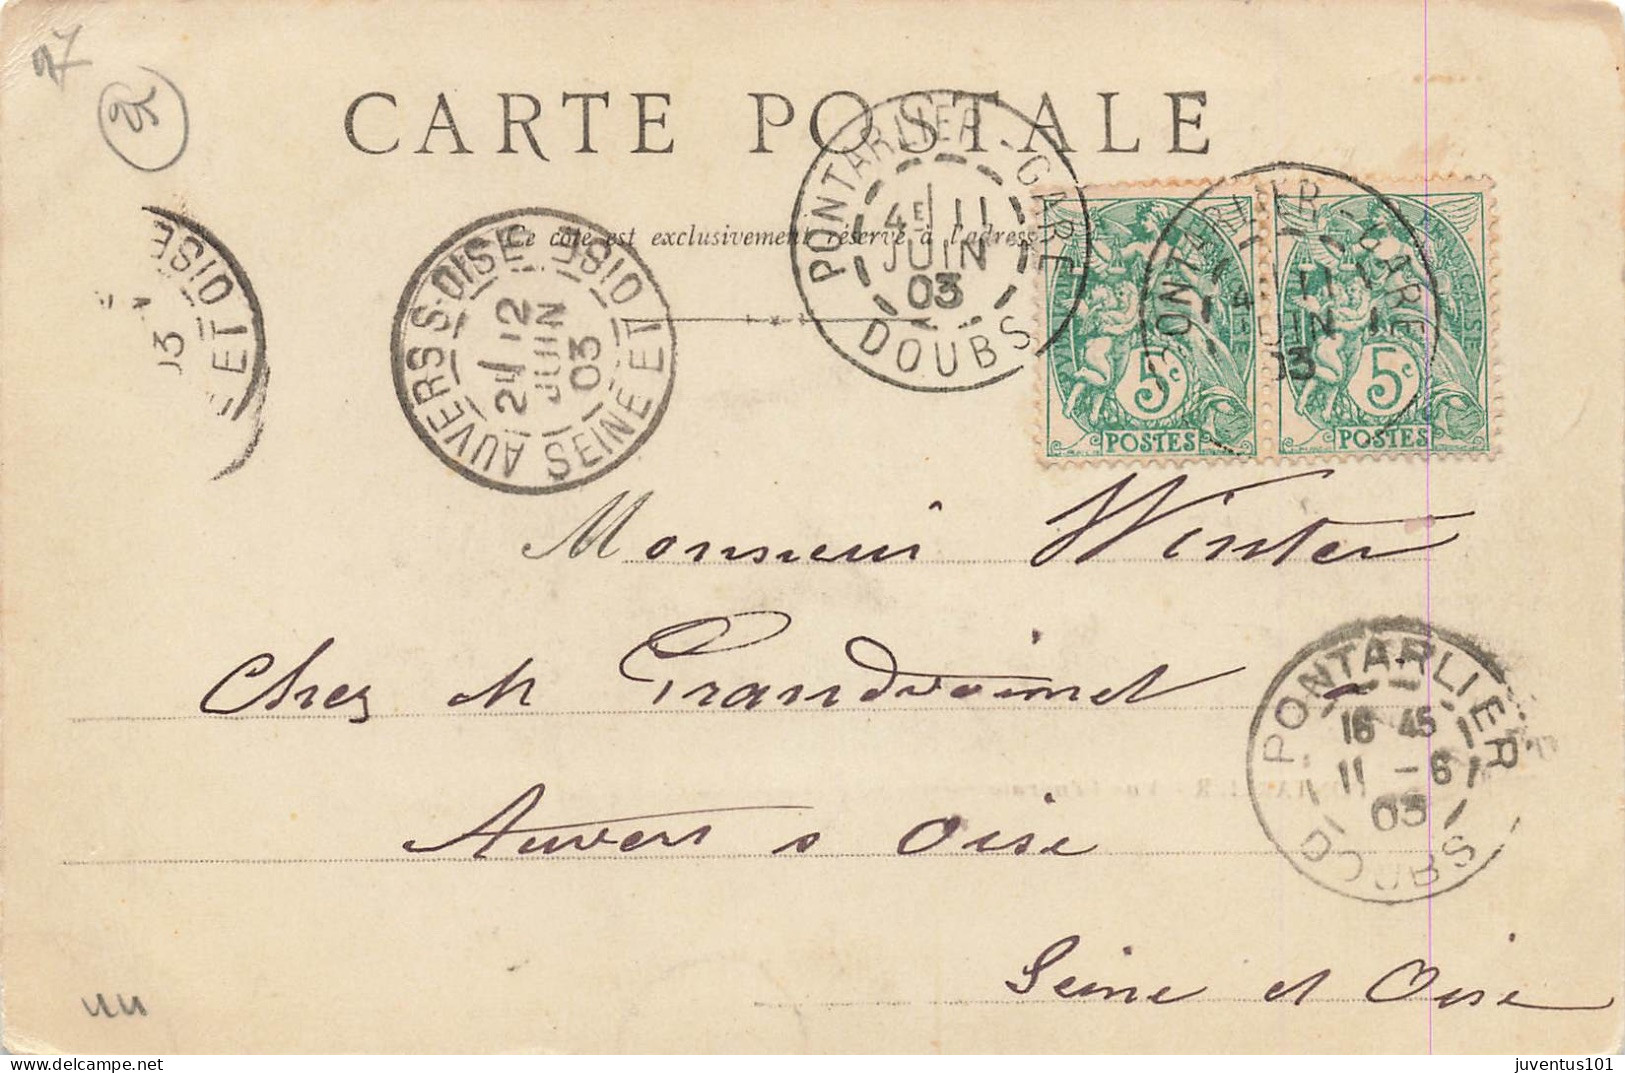 97
CARTE POSTALE
Ce côté est exclusivement réservé à l'adresse
PONTARLIER - GARE
4E 11
JUIN
03
DOUBS
PONTARLIER - GARE
4E 11
JUIN
03
5c
POSTES
5c
POSTES
AUVERS-S-OISE
2E 12
JUIN
03
SEINE ET OISE
OISE
03
ET
Monsieur Winter
Chez M Grandvoinet
Auvers s Oise
Seine et Oise
PONTARLIER
16 45
11 - 6
03
DOUBS
juventus101